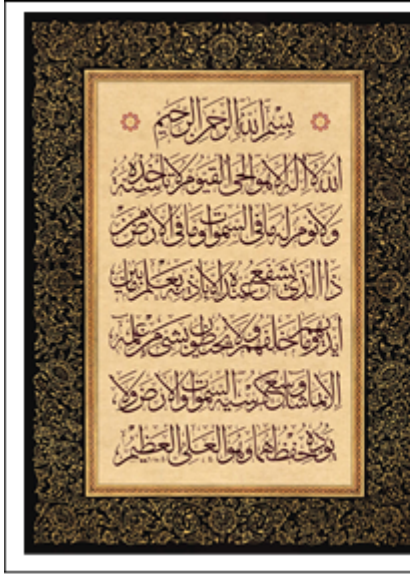 بسم الله الرحمن الرحيم
الله لا اله الا هو الحي القيوم لا تأخذه سنة
ولا نوم له ما في السموات وما في الارض من
ذا الذي يشفع عنده الا باذنه يعلم ما بين
ايديهم وما خلفهم ولا يحيطون بشئ من علمه
الا بما شاء وسع كرسيه السموات والارض ولا
يؤده حفظهما وهو العلي العظيم